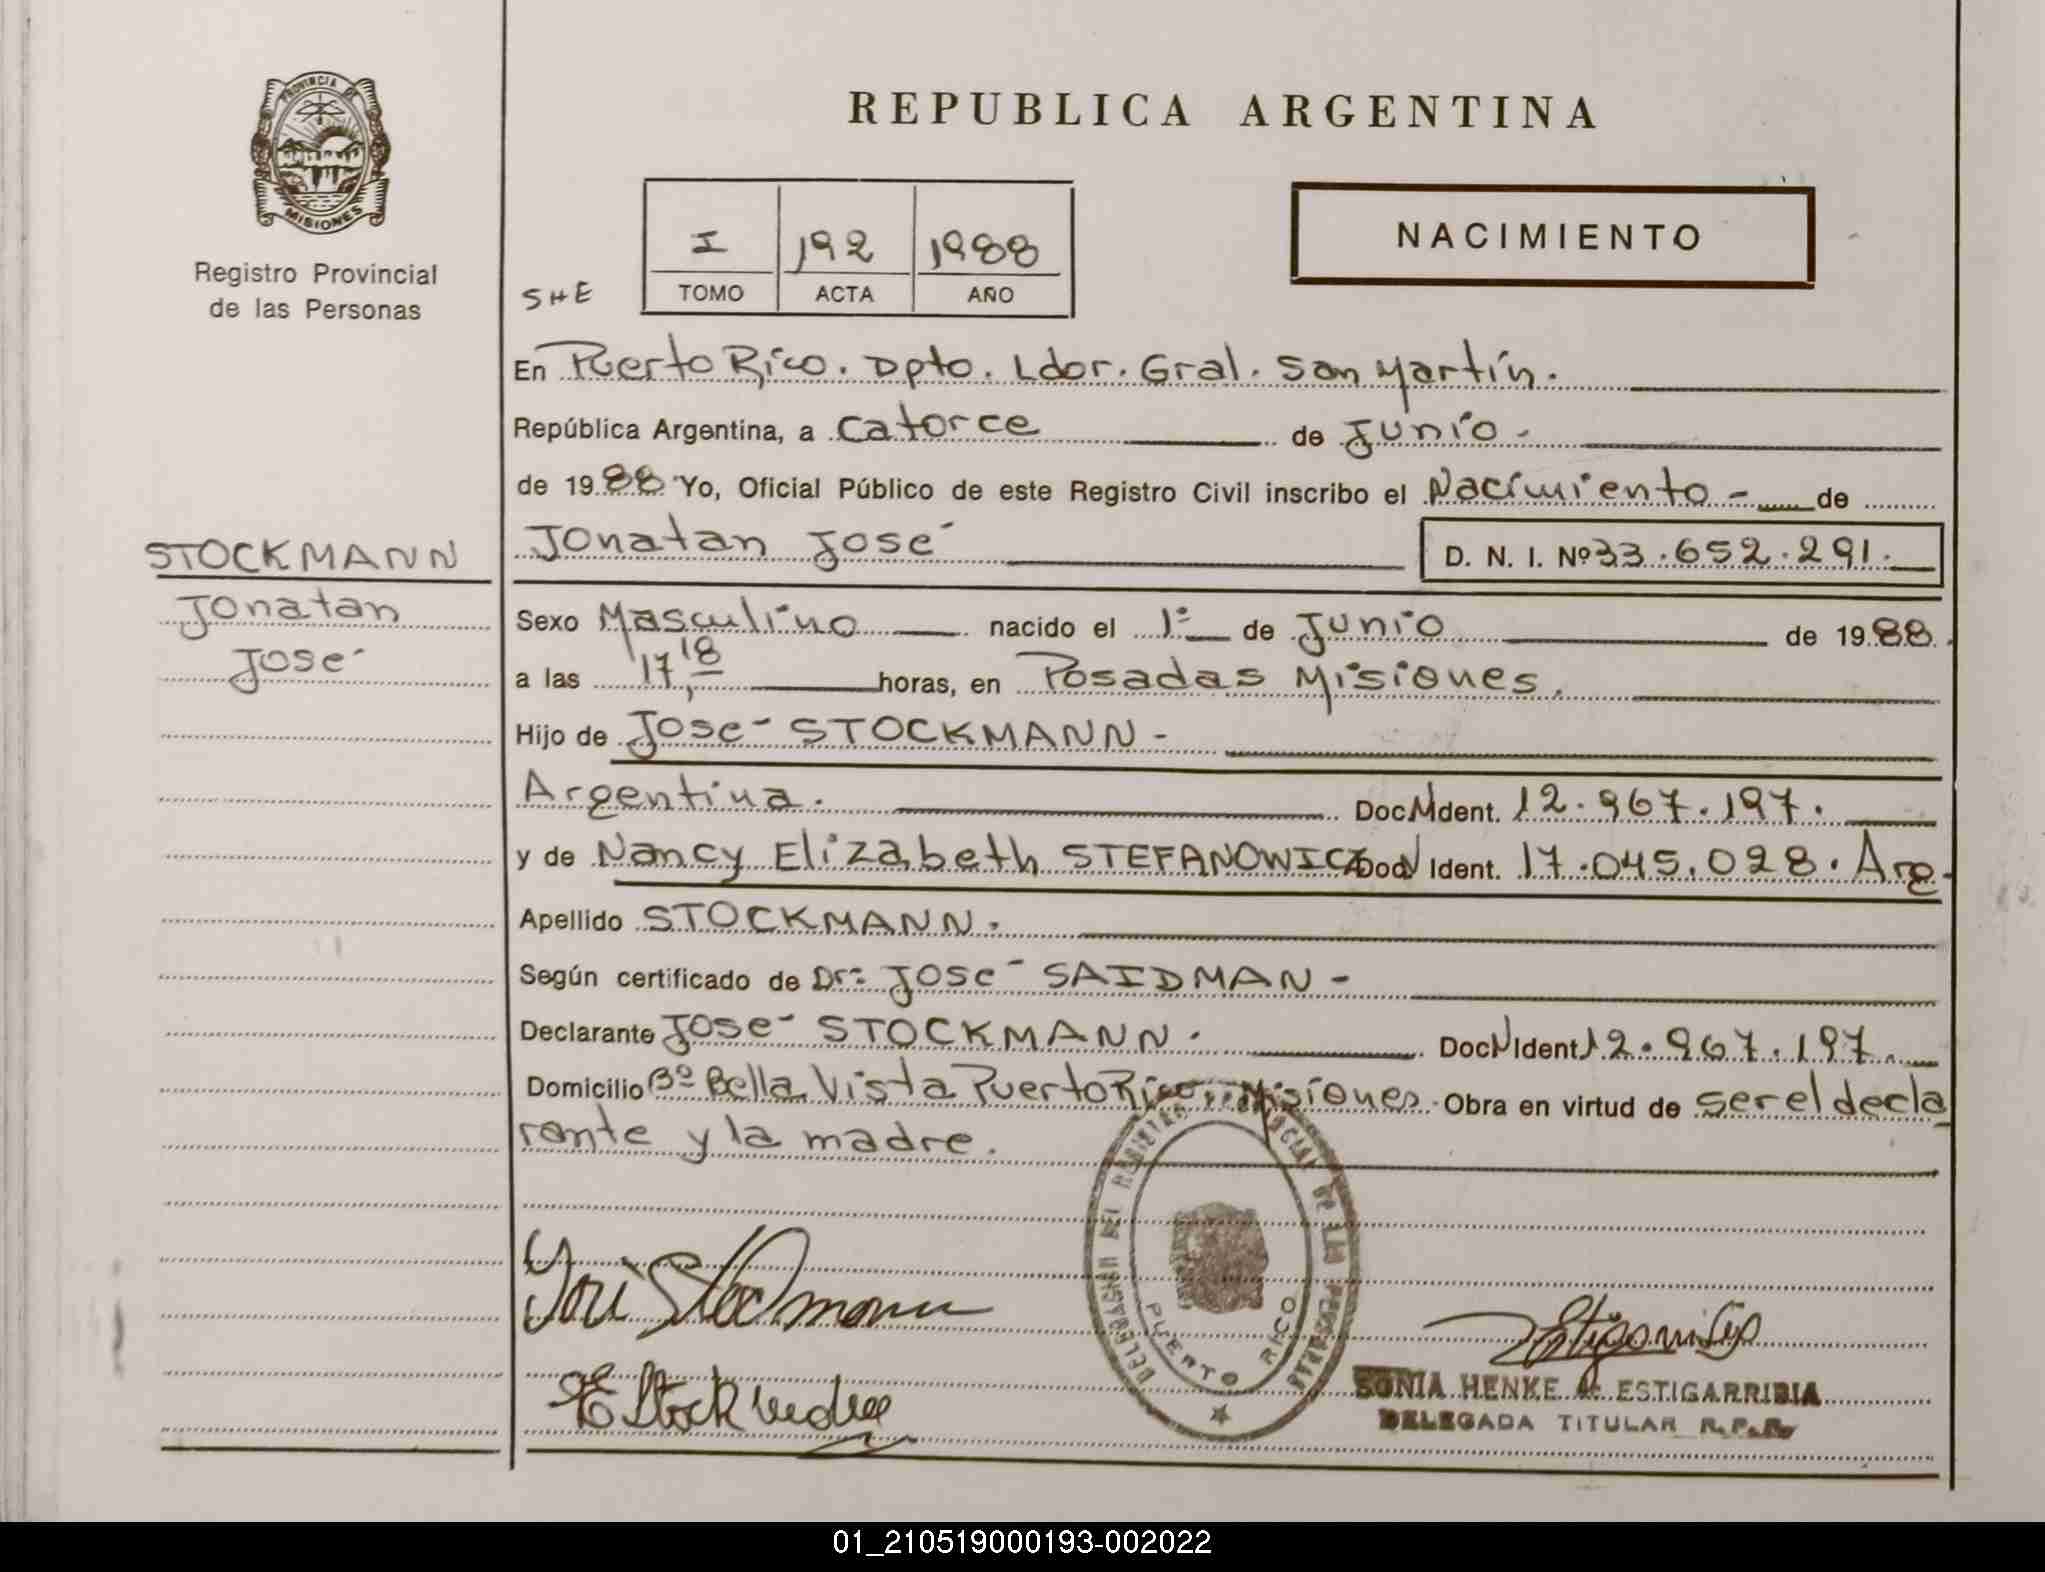 PROVINCIA DE
MISIONES
Registro Provincial
de las Personas
REPUBLICA ARGENTINA
NACIMIENTO
I 192 1988
TOMO ACTA AÑO
SHE
En Puerto Rico. Dpto. Ldor. Gral. San Martín.
República Argentina, a catorce de Junio.
de 1988 Yo, Oficial Público de este Registro Civil inscribo el Nacimiento - de
Jonatan José D. N. I. Nº 33.652.291.
STOCKMANN
Jonatan
José
Sexo Masculino nacido el 1º de Junio de 1988.
a las 17,18 horas, en Posadas Misiones.
Hijo de José STOCKMANN -
Argentina. Doc N Ident. 12.967.197.
y de Nancy Elizabeth STEFANOWICZ Doc N Ident. 17.045.028. Arg.
Apellido STOCKMANN.
Según certificado de Dr: José SAIDMAN -
Declarante José STOCKMANN. Doc N Ident 12.967.197.
Domicilio Bº Bella Vista Puerto Rico, Misiones. Obra en virtud de ser el decla
rante y la madre.
DELEGACION DEL REGISTRO PROVINCIAL DE LAS PERSONAS
PUERTO RICO
SONIA HENKE de ESTIGARRIBIA
DELEGADA TITULAR R.P.P.
01_210519000193-002022